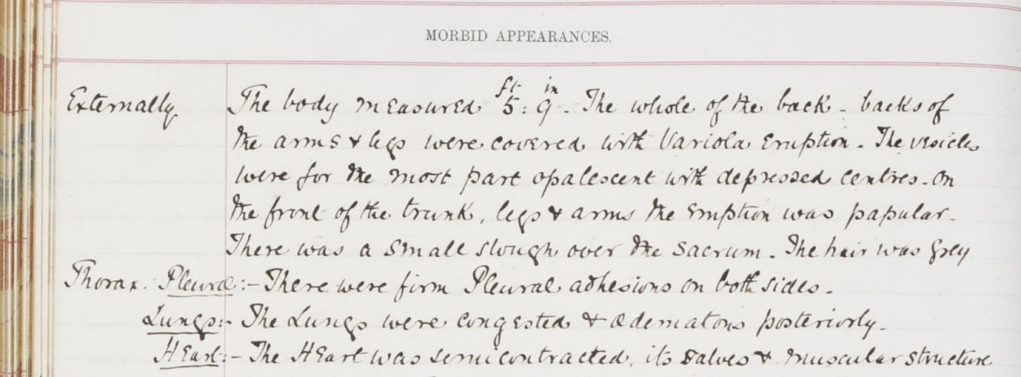 MORBID APPEARANCES.
Externally. The body measured 5 ft: 9 in - The whole of the back - backs of
the arms & legs were covered with Variola Eruption - The vesicles
were for the most part opalescent with depressed centres - On
the front of the trunk, legs & arms the Eruption was papular -
There was a small slough over the Sacrum - The hair was grey
Thorax. Pleuræ:- There were firm Pleural adhesions on both sides -
Lungs:- The Lungs were congested & Œdematous posteriorly -
Heart:- The Heart was semicontracted, its valves & muscular structure